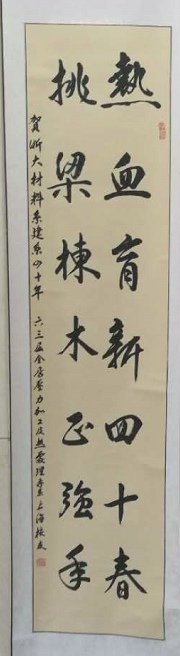 熱血育新四十春
挑梁棟木正強年
賀浙大材料系建系四十年 六三屆金屬壓力加工及熱處理專業上海校友